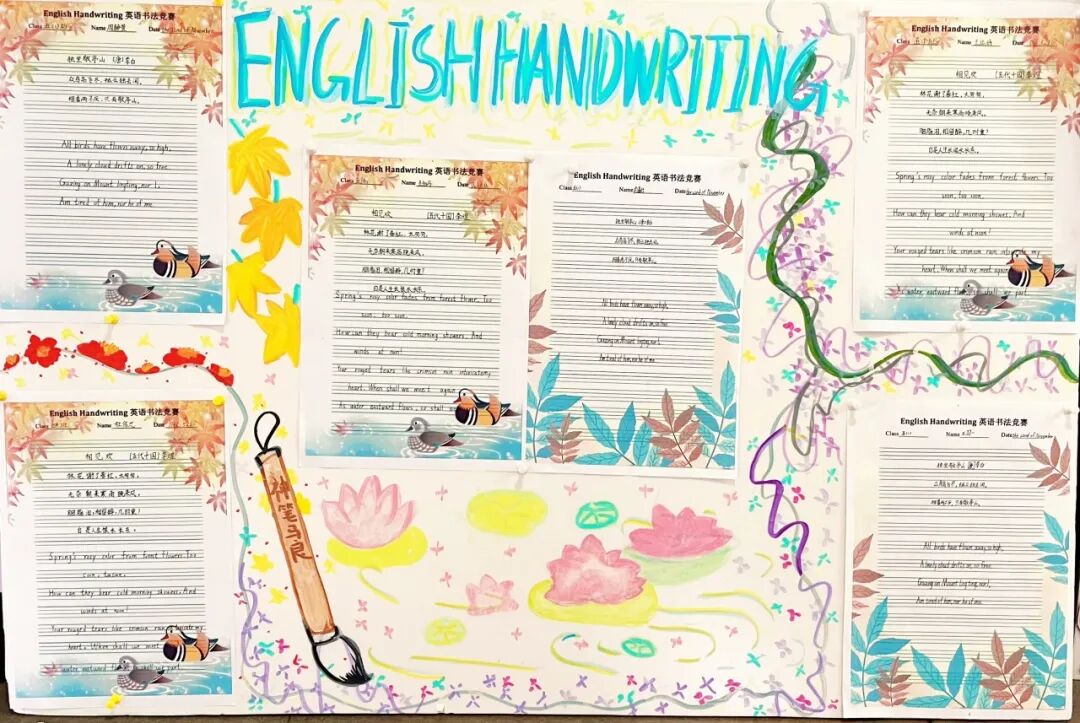 ENGLISH HANDWRITING
English Handwriting 英语书法竞赛
Class Name Date
独坐敬亭山 (唐)李白
众鸟高飞尽,孤云独去闲。
相看两不厌,只有敬亭山。
All birds have flown away, so high,
A lonely cloud drifts on, so free.
Gazing on Mount Jingting, nor I,
Am tired of him, nor he of me.
English Handwriting 英语书法竞赛
Class Name Date
相见欢 (五代十国)李煜
林花谢了春红,太匆匆。
无奈朝来寒雨晚来风。
胭脂泪,相留醉,几时重?
自是人生长恨水长东。
Spring's rosy color fades from forest flowers. Too
soon, too soon.
How can they bear cold morning showers, And
winds at noon!
Your rouged tears like crimson rain intoxicate my
heart. When shall we meet again
As water eastward flows, so shall we
English Handwriting 英语书法竞赛
Class Name Date
All birds have flown away, so high,
A lonely cloud drifts on, so free.
Gazing on Mount Jingting, nor I,
Am tired of him, nor he of me.
English Handwriting 英语书法竞赛
Class Name Date
相见欢 (五代十国)李煜
林花谢了春红,太匆匆。
无奈朝来寒雨晚来风。
胭脂泪,相留醉,几时重?
自是人生长恨水长东。
Spring's rosy color fades from forest flowers. Too
soon, too soon.
How can they bear cold morning showers, And
winds at noon!
Your rouged tears like crimson rain intoxicate my
heart. When shall we meet again
As water eastward shall we part.
English Handwriting 英语书法竞赛
Class Name Date
相见欢 (五代十国)李煜
林花谢了春红,太匆匆。
无奈朝来寒雨晚来风。
胭脂泪,相留醉,几时重?
自是人生长恨水长东。
Spring's rosy color from forest flowers. Too
soon, too soon.
How can they bear cold morning showers, And
winds at noon!
Your rouged tears like crimson rain my
heart. When shall we meet
water eastward shall we part.
神笔马良
English Handwriting 英语书法竞赛
Class Name Date
独坐敬亭山 李白
All birds have flown away, so high,
A lonely cloud drifts on, so free.
Gazing on Mount Jingting, nor I,
Am tired of him, nor he of me.